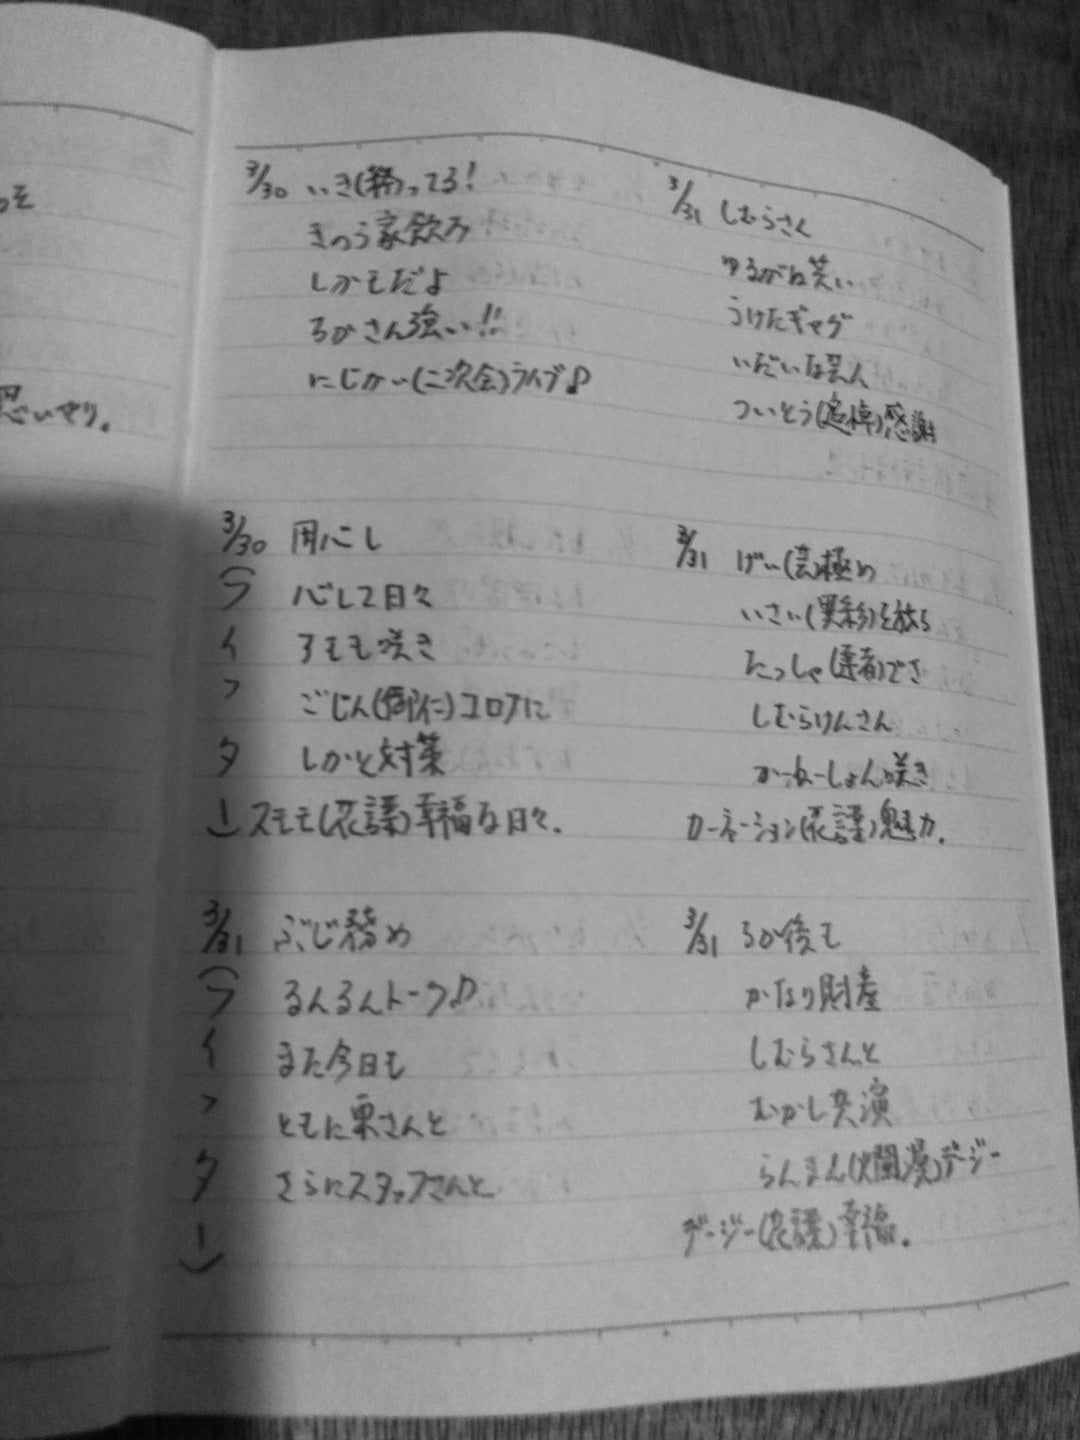 っそ
思いやり。
3/30 いき(粋)ってる!
きのう家飲み
しかもだよ
るかさん強い!!
にじかい(二次会)ライブ♪
3/30 用心し
(ライブター)
心して日々
スモモ咲き
ごじん(御仁)コロナに
しかと対策
スモモ(花言葉)幸福な日々。
3/31 ぶじ務め
(ライフター)
るんるんトーク♪
また今日も
ともに栗さんと
さらにスタッフさんと
3/31 しむらさん
ゆるがな笑い
うけたギャグ
いだいな芸人
ついとう(追悼)感謝
3/31 げい(芸)極め
いさい(異彩)を放ち
たっしゃ(達者)でさ
しむらけんさん
かーねーしょん咲き
カーネーション(花言葉)魅力。
3/31 るか後も
かなり財産
しむらさんと
むかし共演
らんまん(爛漫)デージー
デージー(花言葉)幸福。